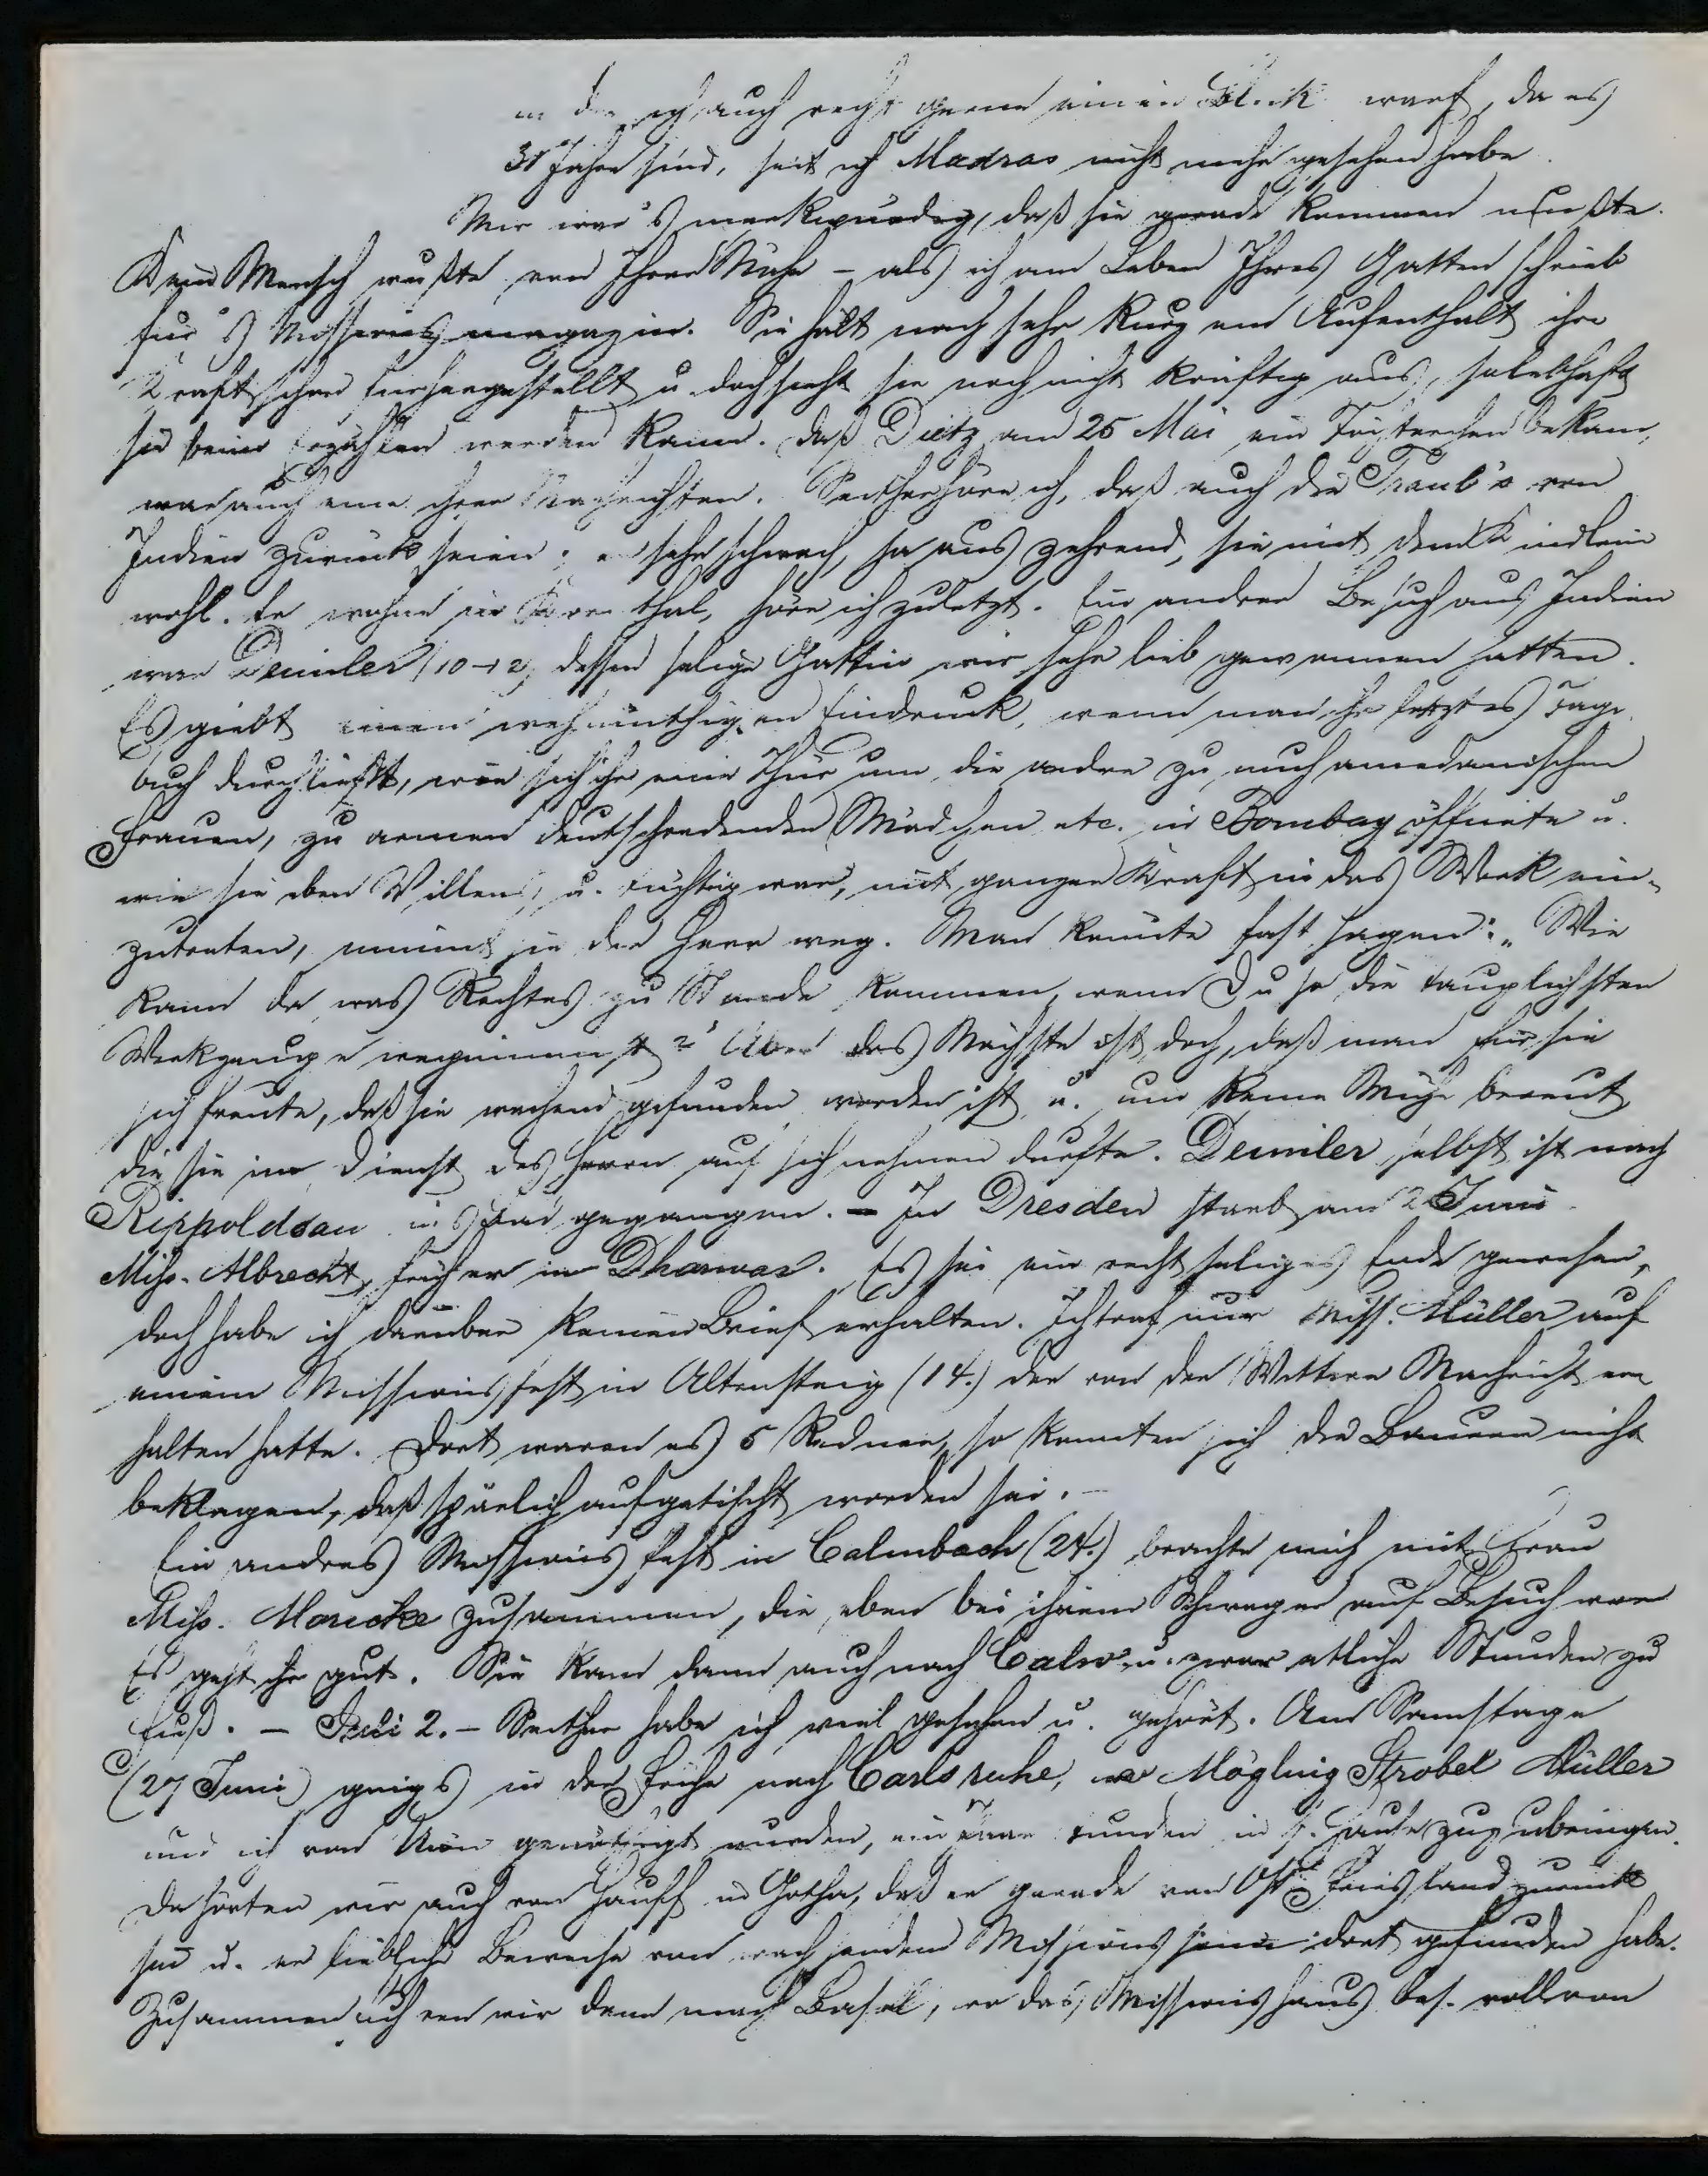 in den ich auch recht gerne einen Blick warf, da es
31 Jahre sind, seit ich Madras nicht mehr gesehen habe.
Mir war's merkwürdig, daß sie gerade kommen mußte.
Kein Mensch wußte von Ihrer Nähe - als ich am Leben Ihres Gatten schrieb
für's Missionsmagazin. Sie hält nach sehr kurzem Aufenthalt ihre
Kraft schon für hergestellt u. doch sieht sie noch nicht kräftig aus, so lebhaft
sie beim Erzählen werden kann. Daß Dietz am 25 Mai ein Töchterchen bekam,
war auch eine ihrer Nachrichten. Seither höre ich, daß auch die Traub's von
Indien zurück seien; er sehr schwach, ja auszehrend, sie mit dem Kindlein
wohl. Er wohne in Kornthal, höre ich zuletzt. Ein andrer Besuch aus Indien
war Deimler (10-12) dessen selige Gattin wir sehr lieb gewonnen hatten.
Es giebt einen wehmüthigen Eindruck, wenn man ihr letztes Tage
buch durchliest, wie sich ihr eine Thür um die andre zu muhamedanischen
Frauen, zu armen deutschredenden Mädchen etc. in Bombay öffnete u.
wie sie eben Willens u. tüchtig war, mit ganzer Kraft in das Werk ein-
zutreten, nimmt sie der Herr weg. Man könnte fast sagen: „Wie
kann da was Rechtes zu Stande kommen, wenn Du so die tauglichsten
Werkzeuge wegnimmst?" Aber das Nächste ist doch, daß man für sie
sich freute, daß sie wachend gefunden worden ist u. nun keine Mühe bereut
die sie im Dienst des Herrn auf sich nehmen durfte. Deimler selbst ist nach
Rippoldsau ins Bad gegangen. - In Dresden starb am 2 Juni
Miss. Albrecht, früher in Dharwar. Es sei ein recht seliges Ende gewesen,
doch habe ich darüber keinen Brief erhalten. Ich traf nur Miss. Müller auf
einem Missionsfest in Altensteig (14.) der von der Wittwe Nachricht er
halten hatte. Dort waren es 5 Redner, so konnten sich die Bauern nicht
beklagen, daß spärlich aufgetischt worden sei. -
Ein andres Missionsfest in Calmbach (24.) brachte mich mit Frau
Miss. Moricke zusammen, die eben bei ihrem Schwager auf Besuch war
Es geht ihr gut. Sie kam dann auch nach Calw u. zwar etliche Stunden zu
Fuß. - Juli 2. - Seither habe ich viel gesehen u. gehört. Am Samstage
(27 Juni) giengs in der Frühe nach Carlsruhe, wo Mögling Strobel Müller
und ich von genöthigt wurden, ein paar Stunden in s. Hause zuzubringen.
Da hörten wir auch von Hauff in Gotha, daß er gerade von Ostfriesland zurück
sei u. er liebliche Beweise von wachsendem Missionssinn dort gefunden habe.
Zusammen fuhren wir dann nach Basel, wo das Missionshaus bes. voll von